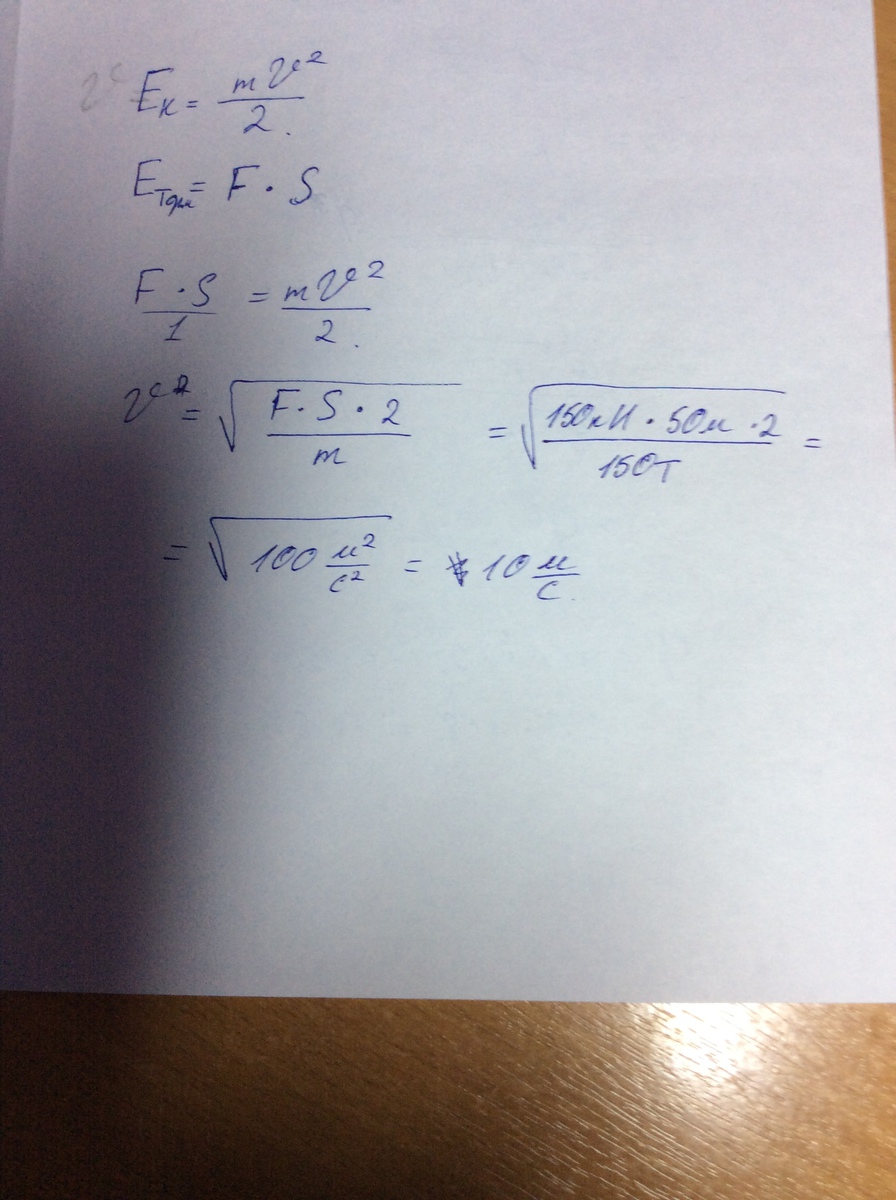 Eк = mv²/2.
Eторм = F · S
F · S/1 = mv²/2.
v = √(F · S · 2/m) = √(150кН · 50м · 2/150т) =
= √(100 м²/с²) = 10 м/с.